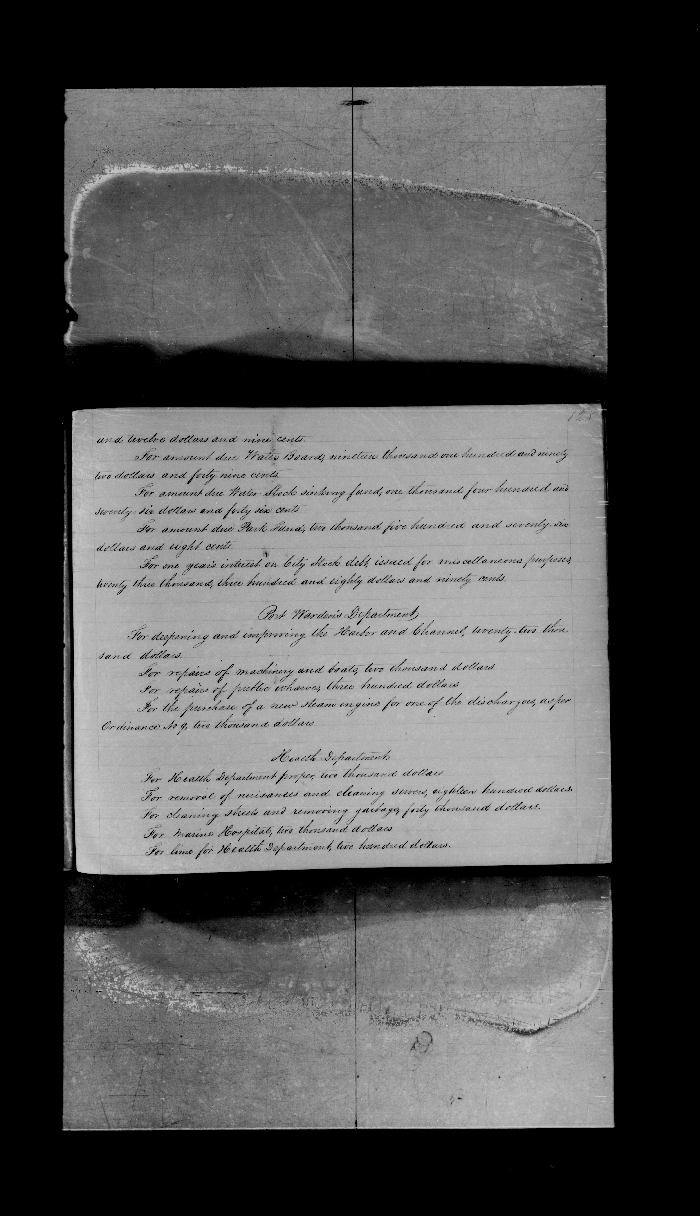 and twelve dollars and nine cents.
For amount due Water Board, nineteen thousand one hundred and ninety
two dollars and forty nine cents.
For amount due Water Stock sinking fund, one thousand four hundred and
seventy-six dollars and forty six cents
For amount due Park Fund, two thousand five hundred and seventy-six
dollars and eight cents.
For one year's interest on City Stock debt, issued for miscellaneous purposes,
twenty three thousand, three hundred and eighty dollars and ninety cents.
Port Warden's Department,
For deepening and improving the Harbor and Channel, twenty-two thou-
sand dollars.
For repairs of machinery and boats, two thousand dollars
For repairs of public wharves, three hundred dollars
For the purchase of a new steam engine for one of the dischargers, as per
Ordinance No 9, two thousand dollars
Health Department,
For Health Department proper, two thousand dollars
For removal of nuisances and cleaning sewers, eighteen hundred dollars.
For cleaning streets and removing garbage, forty thousand dollars.
For Marine Hospital, two thousand dollars
For lime for Health Department, two hundred dollars.